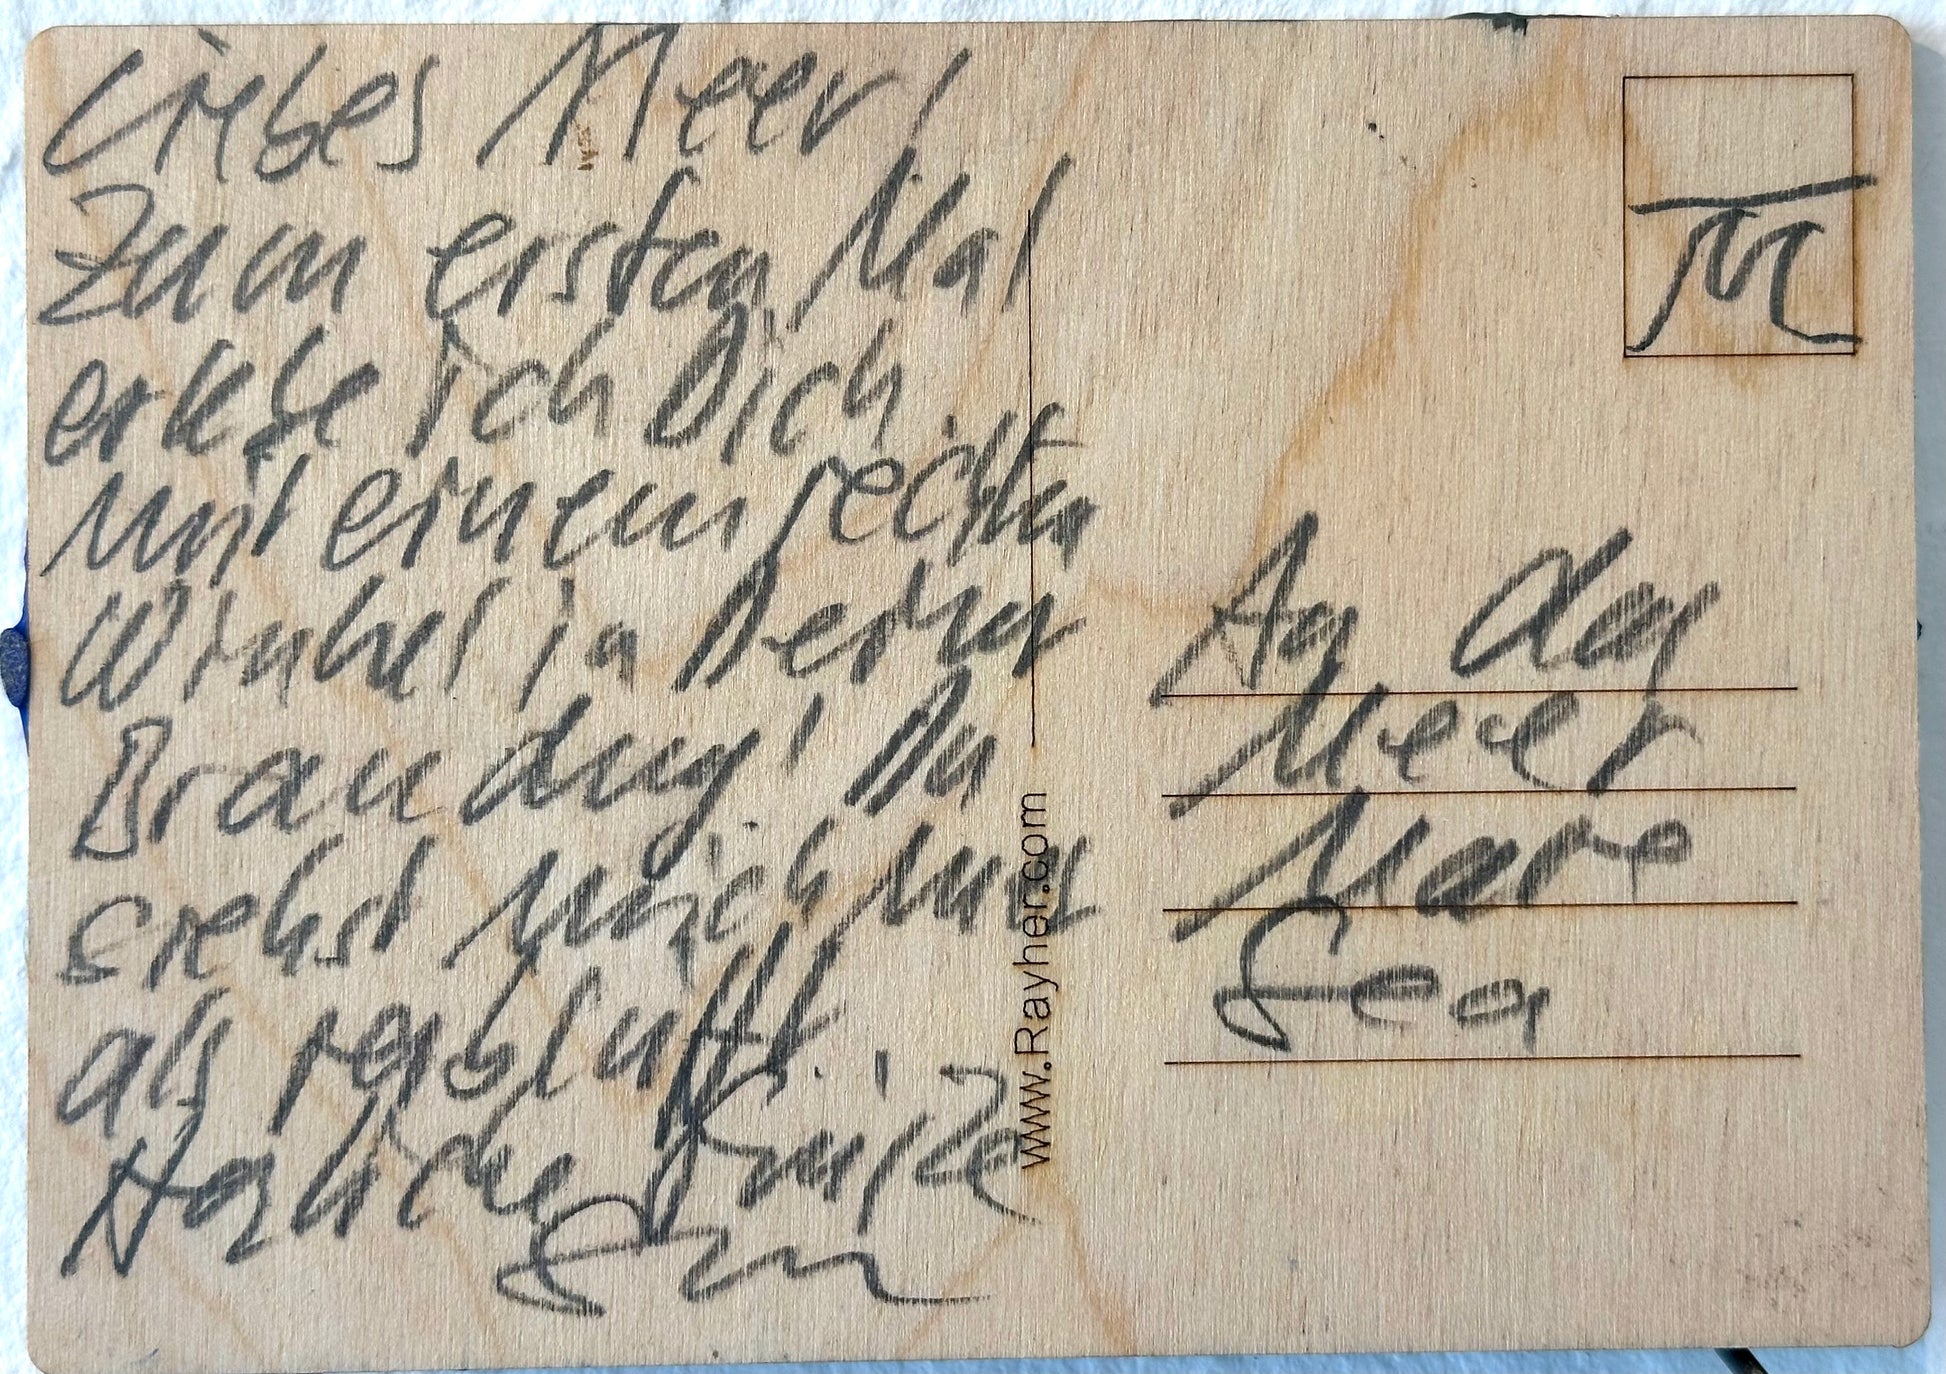 Liebes Meer!
Zum ersten Mal
erlebe ich Dich
mit einem rechten
Winkel in Deiner
Brandung! Du
siehst mich nun
als
π
An das
Meer
Mare
Sea
www.Rayher.com